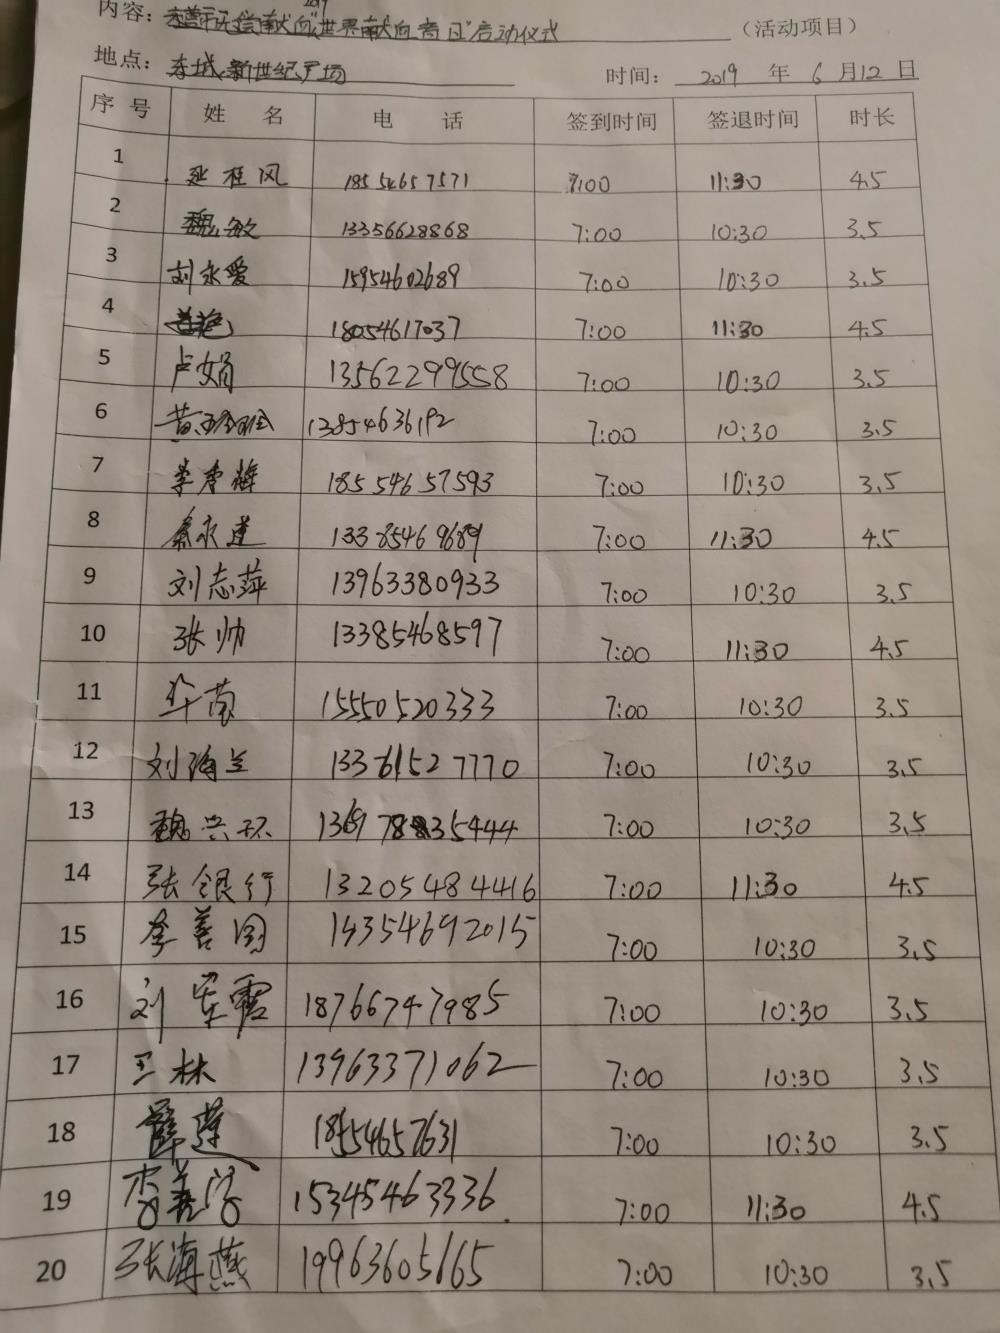 内容： 无偿献血 2019 世界献血者日"启动仪式 （活动项目）
地点： 东城新世纪广场 时间： 2019 年 6 月12 日
序号 姓名 电话 签到时间 签退时间 时长
1 延桂风 18554657571 7:00 11:30 4.5
2 魏敏 13356628868 7:00 10:30 3.5
3 刘永爱 15954602689 7:00 10:30 3.5
4 18054617037 7:00 11:30 4.5
5 卢娟 13562299558 7:00 10:30 3.5
6 黄 13854636192 7:00 10:30 3.5
7 李秀梅 18554657593 7:00 10:30 3.5
8 秦永莲 13385469689 7:00 11:30 4.5
9 刘志萍 13963380933 7:00 10:30 3.5
10 张帅 13385468597 7:00 11:30 4.5
11 15550520333 7:00 10:30 3.5
12 刘海兰 13361527770 7:00 10:30 3.5
13 魏兴环 7:00 10:30 3.5
14 张银行 13205484416 7:00 11:30 4.5
15 李善国 7:00 10:30 3.5
16 刘军霞 18766747985 7:00 10:30 3.5
17 王林 13963371062 7:00 10:30 3.5
18 薛莲 18554657631 7:00 10:30 3.5
19 李 15345463336 7:00 11:30 4.5
20 张海燕 19963605665 7:00 10:30 3.5